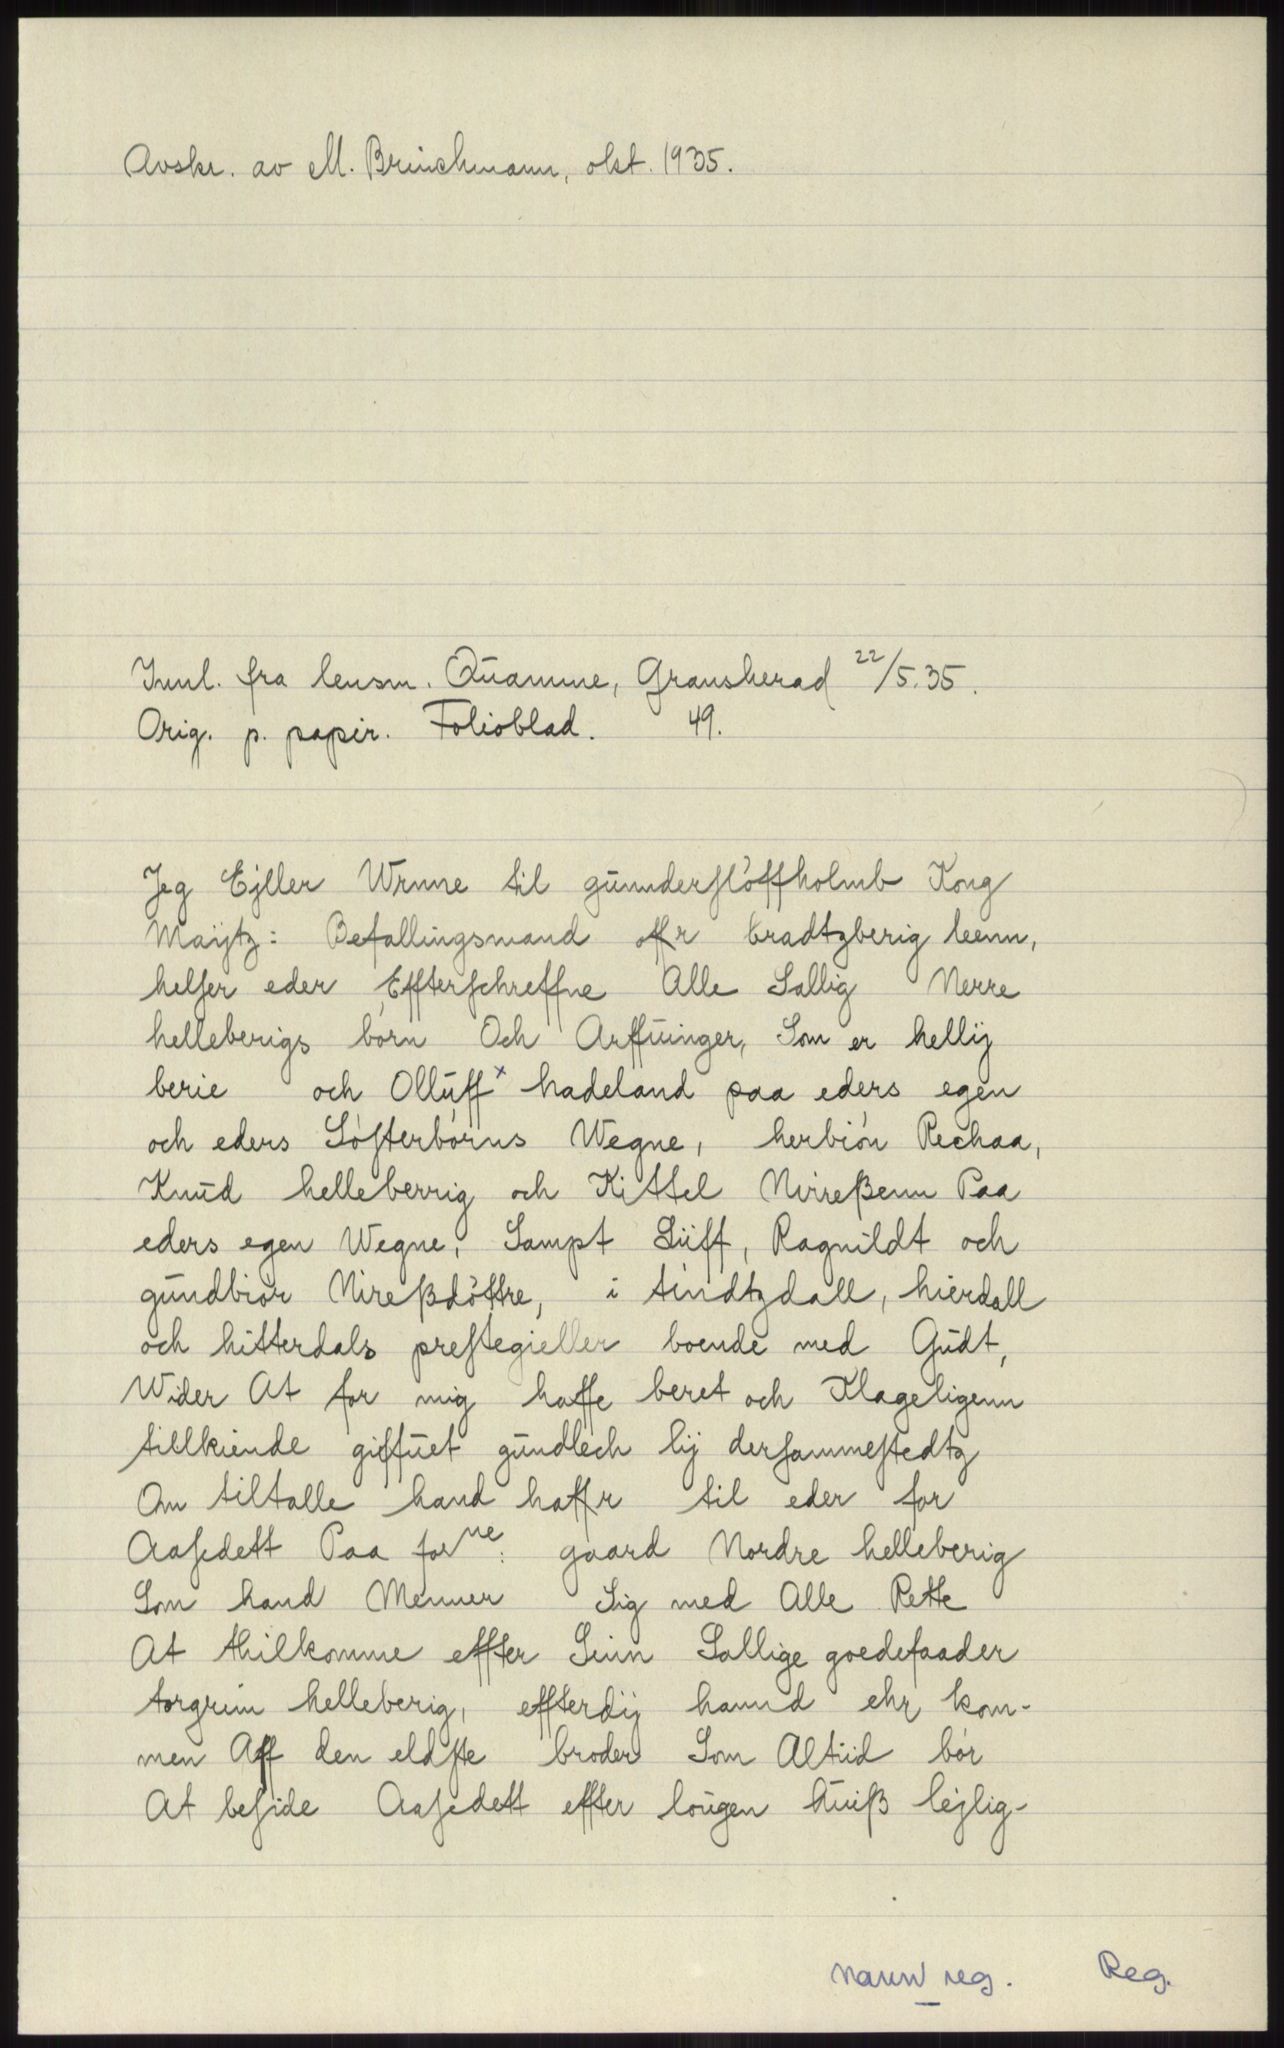 Avskr. av M. Brinchmann, okt. 1935.
Innl. fra lensm. Qŭamme, Gransherad 22/5.35.
Orig. p. papir. Folioblad. 49.
Jeg Ejller Wrnne til gŭnnderslöffholmb Kong
Maÿtz: Befallingsmand offr bradtzberig leenn,
helser eder Effterschreffne Alle Sallig Nerre
helleberigs börn Och Arffŭinger, Som er hellij
berie och Ollŭff x hadeland paa eders egen
och eders Sösterbörns Wegne, herbiön Rechaa,
Knŭd helleberrig och Kittel Nirreßenn Paa
eders egen Wegne, Sampt Siiff, Ragnildt och
gŭndbiör Nireßdöttre, i tindtzdall, hierdall
och hitterdals prestegieller boende med Gŭdt,
Wider At for mig haffe beret och Klageligenn
tillkiende giffŭet gŭndlech lij dersammestedtz
Om tiltalle hand haffr til eder for
Aasedett Paa forne: gaard Nordre helleberig
Som hand Menner Sig med Alle Rette
At thilkomme effter Sinn Sallige goedefaader
torgrim helleberig, efferdij hannd ehr kom-
men Aff den eldste broder Som Altiid bör
At beside Aasedett effter loŭgen hŭiß lejlig-
navnreg. Reg.